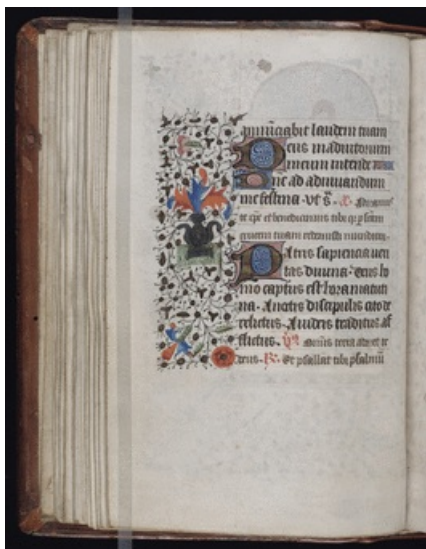 annūciabit laudem tuam
Deus in adiutorium
meum intende
Dne ad adiuuandum
me festina. Vt s. Adoramus
te xp̄e et benedicimus tibi
crucem tuam redemisti mundum.
Patris sapiencia ueri
tas diuina. Deus ho
mo captus est hora matuti
na. A notis discipulis cito de
relictus. A iudeis traditus af
flictus. terra adoret te
deus. R. Et psallat tibi psalmū